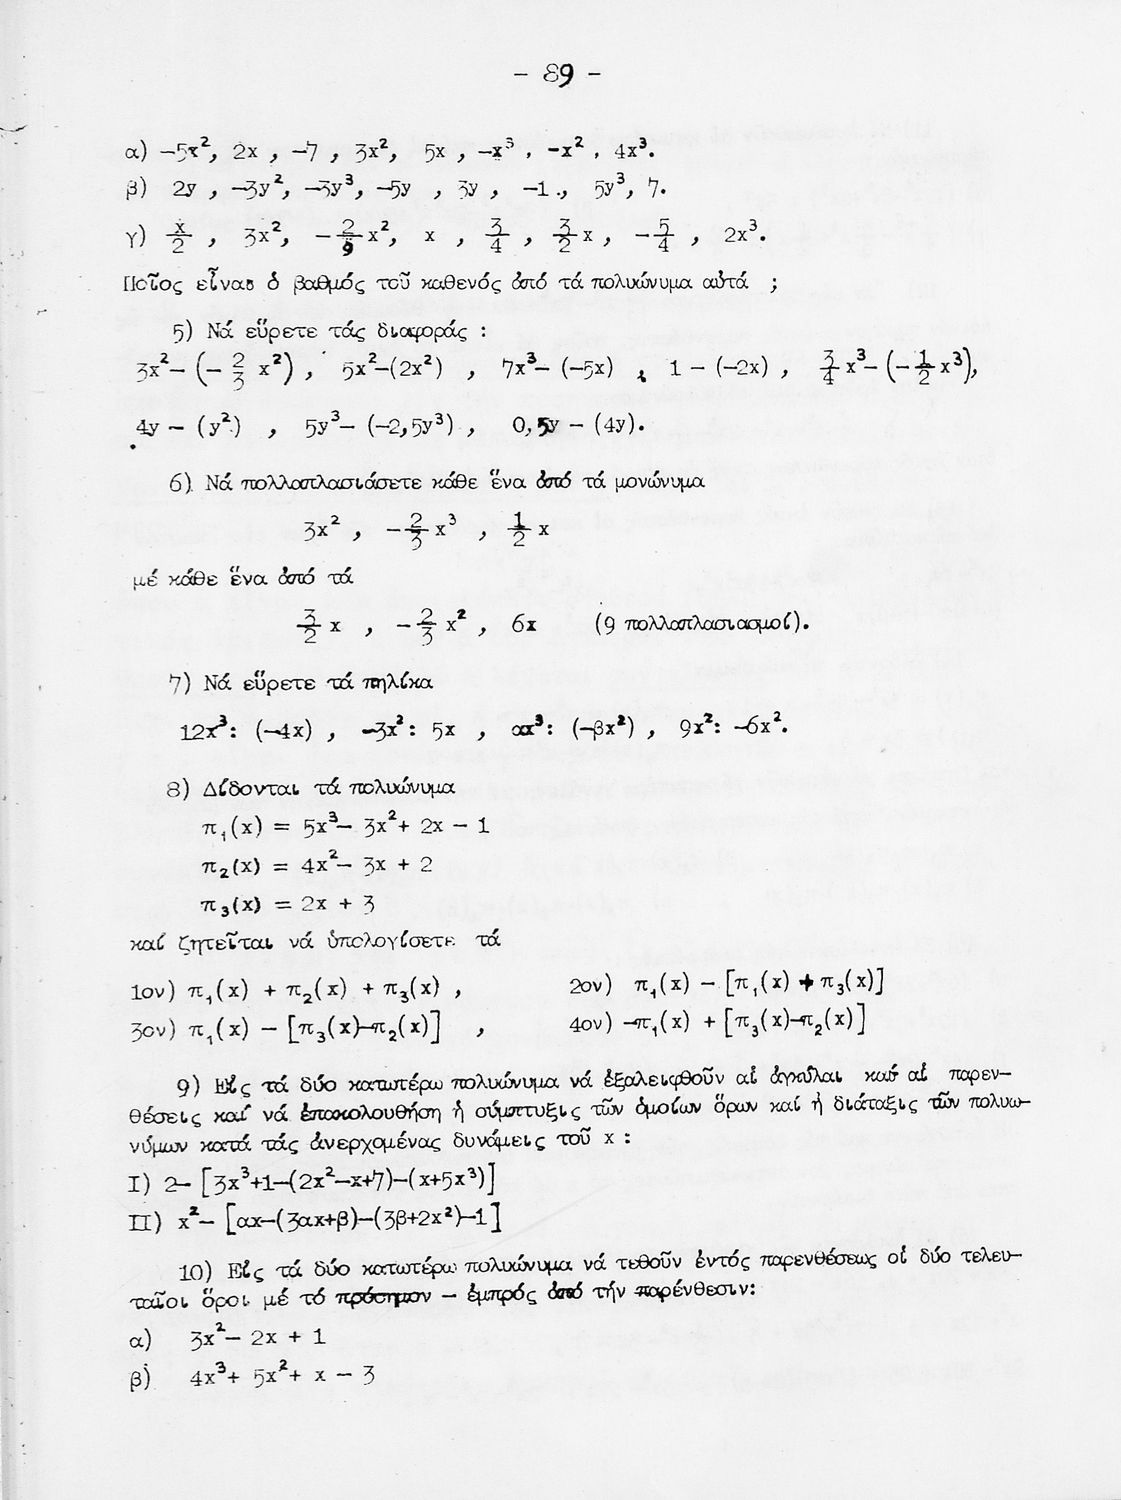 - 89 -
α) -5x², 2x , -7 , 3x², 5x , -x³ , -x² , 4x³.
β) 2y , -3y², -3y³, -5y , 3y , -1 , 5y³, 7.
γ) x/2 , 3x², -2/9 x², x , 3/4 , 3/2 x , -5/4 , 2x³.
Ποῖος εἶναι ὁ βαθμός τοῦ καθενός ἀπό τά πολυώνυμα αὐτά ;
5) Νά εὕρετε τάς διαφοράς :
3x² - (- 2/3 x²) , 5x²-(2x²) , 7x³- (-5x) , 1 - (-2x) , 3/4 x³- (- 1/2 x³),
4y - (y²) , 5y³- (-2,5y³) , 0,5y - (4y).
6) Νά πολλαπλασιάσετε κάθε ἕνα ἀπό τά μονώνυμα
3x² , - 2/3 x³ , 1/2 x
μέ κάθε ἕνα ἀπό τά
3/2 x , - 2/3 x² , 6x (9 πολλαπλασιασμοί).
7) Νά εὕρετε τά πηλίκα
12x³: (-4x) , -3x²: 5x , αx³: (-βx²) , 9x²: -6x².
8) Δίδονται τά πολυώνυμα
π₁(x) = 5x³- 3x²+ 2x - 1
π₂(x) = 4x²- 3x + 2
π₃(x) = 2x + 3
καί ζητεῖται νά ὑπολογίσετε τά
1ον) π₁(x) + π₂(x) + π₃(x) , 2ον) π₁(x) - [π₁(x) + π₃(x)]
3ον) π₁(x) - [π₃(x)-π₂(x)] , 4ον) -π₁(x) + [π₃(x)-π₂(x)]
9) Εἰς τά δύο κατωτέρω πολυώνυμα νά ἐξαλειφθοῦν αἱ ἀγκύλαι καί αἱ παρεν-
θέσεις καί νά ἐπακολουθήση ἡ σύμπτυξις τῶν ὁμοίων ὅρων καί ἡ διάταξις τῶν πολυω-
νύμων κατά τάς ἀνερχομένας δυνάμεις τοῦ x :
I) 2- [3x³+1-(2x²-x+7)-(x+5x³)]
II) x²- [αx-(3αx+β)-(3β+2x²)-1]
10) Εἰς τά δύο κατωτέρω πολυώνυμα νά τεθοῦν ἐντός παρενθέσεως οἱ δύο τελευ-
ταῖοι ὅροι μέ τό πρόσημον - ἐμπρός ἀπό τήν παρένθεσιν:
α) 3x²- 2x + 1
β) 4x³+ 5x²+ x - 3